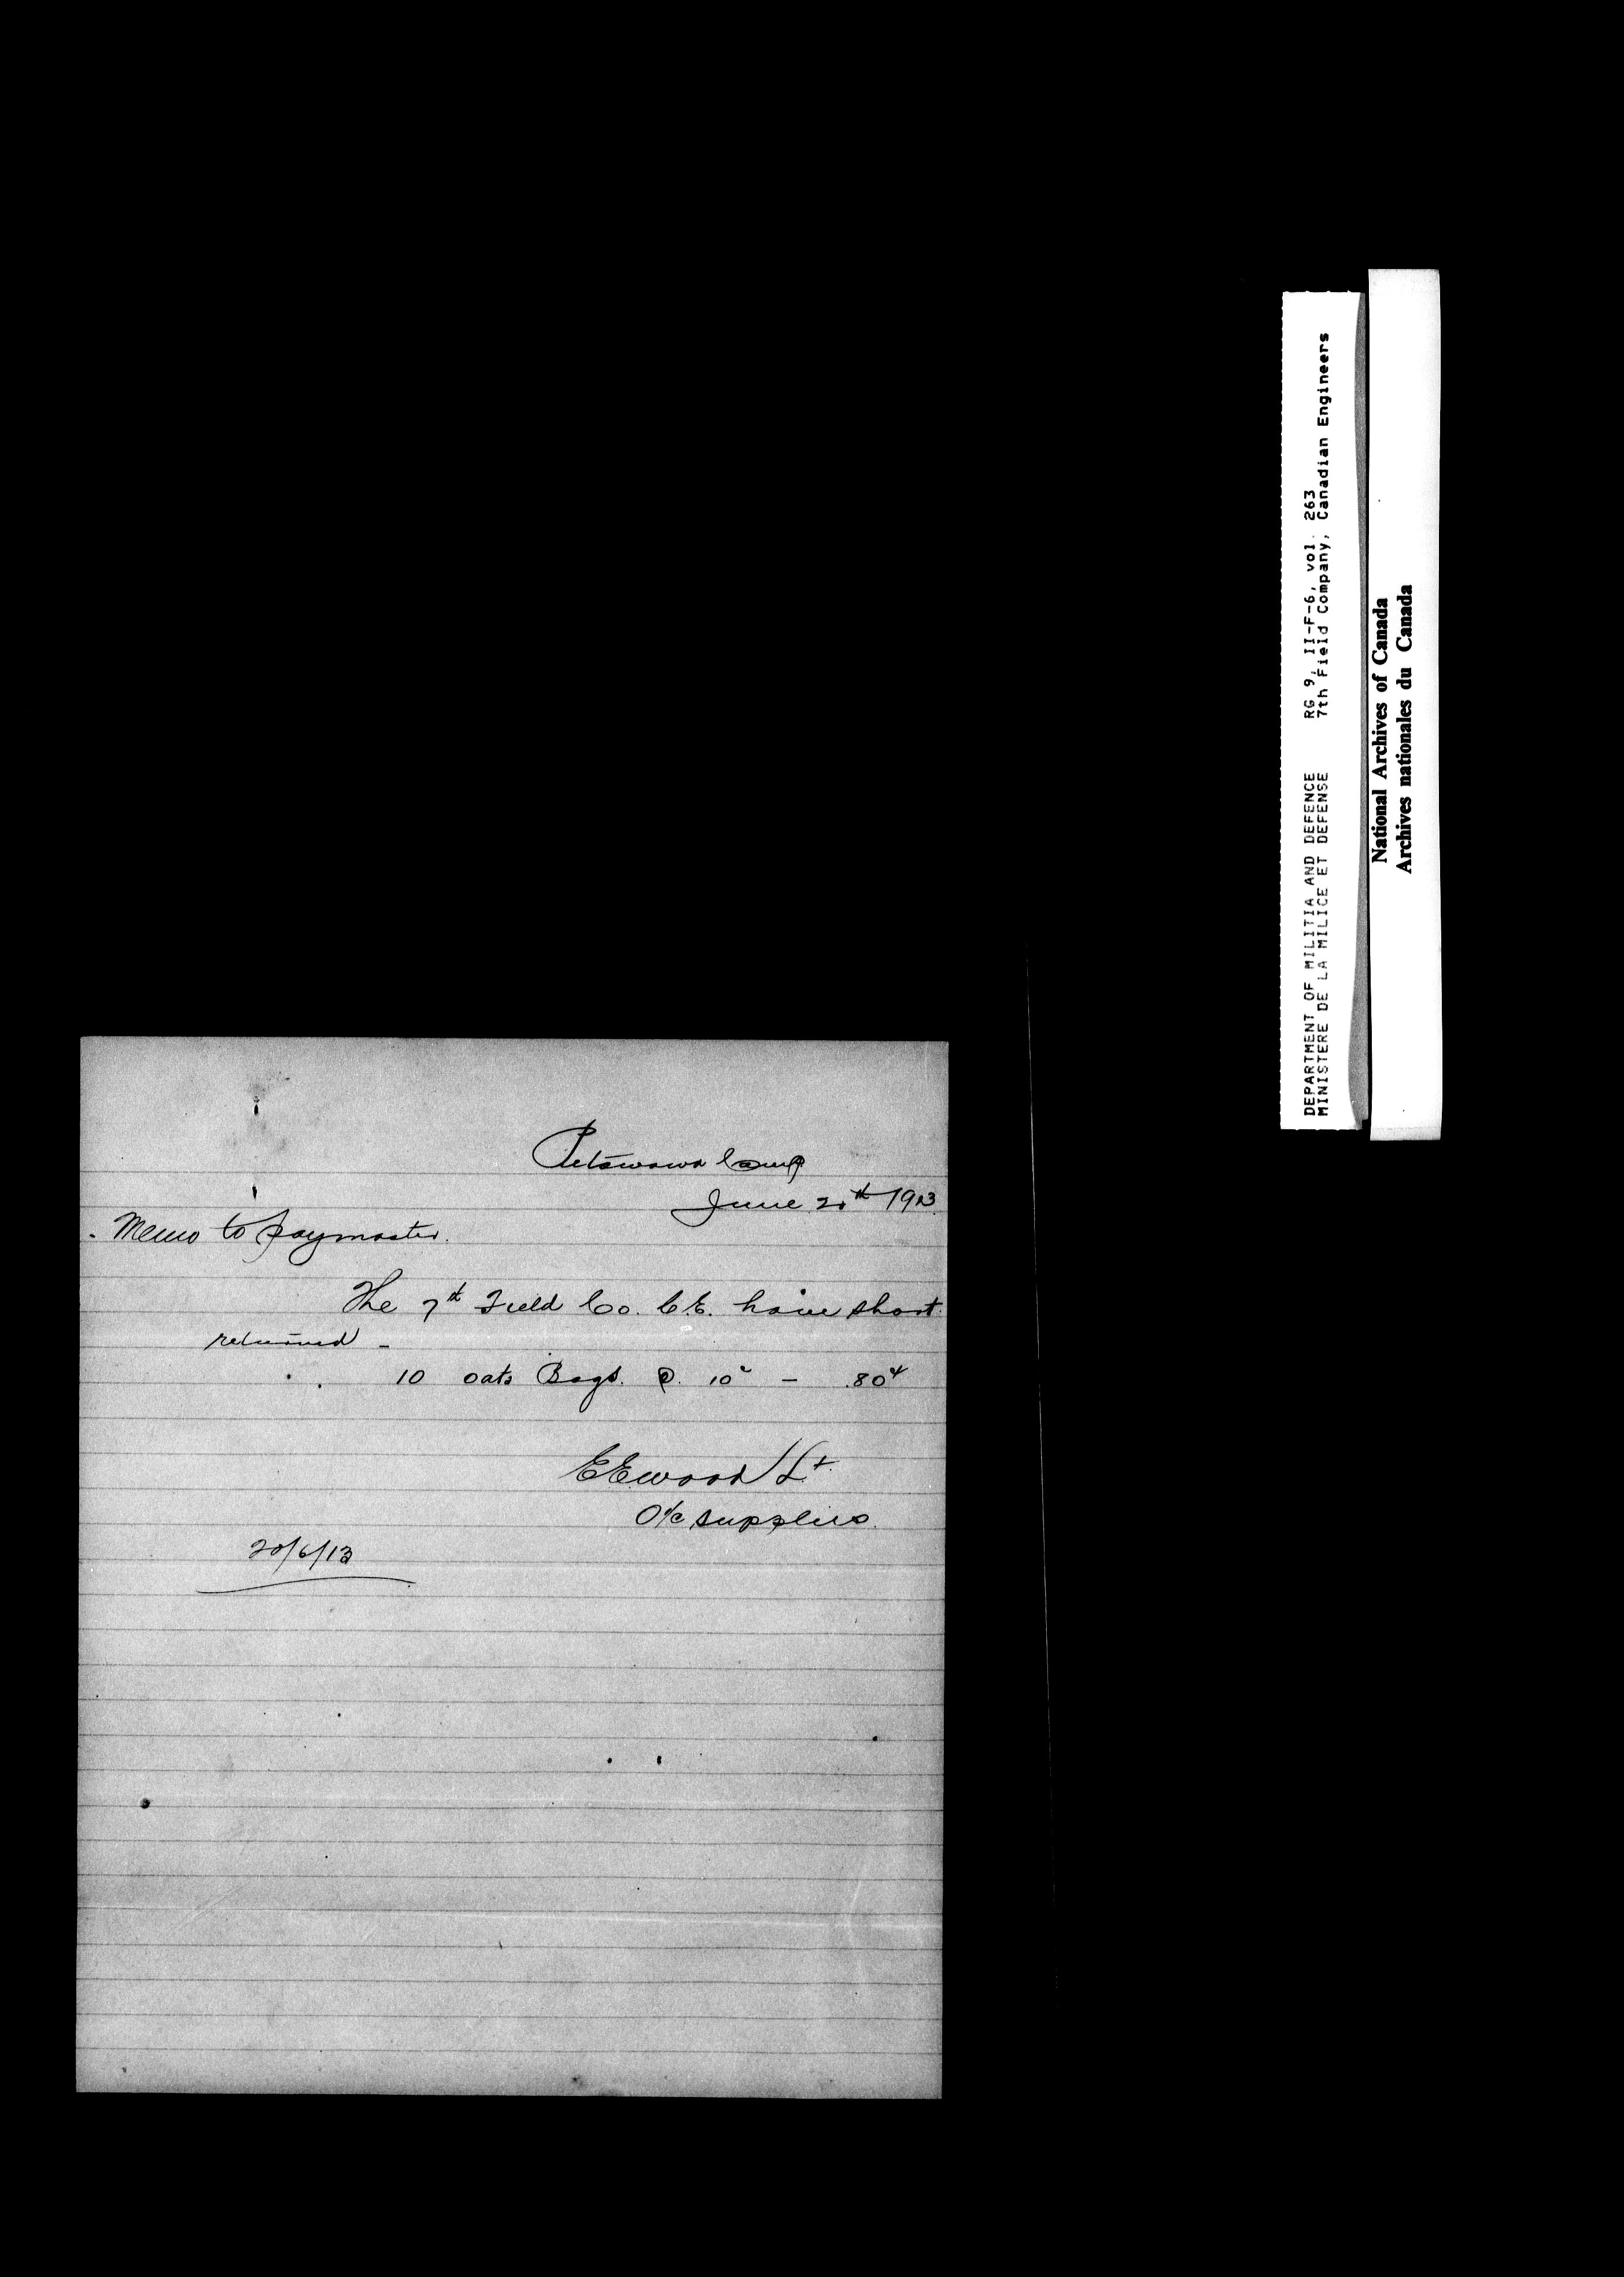 Petawawa Camp
June 20th 1913
Memo to Paymaster.
The 7th Field Co. C.E. have short
returned -
10 oats Bags. @. 10c - .80¢
EEWood Lt.
O/c Supplies.
20/6/13
DEPARTMENT OF MILITIA AND DEFENCE RG 9, II-F-6, vol. 263
MINISTERE DE LA MILICE ET DEFENSE 7th Field Company, Canadian Engineers
National Archives of Canada
Archives nationales du Canada